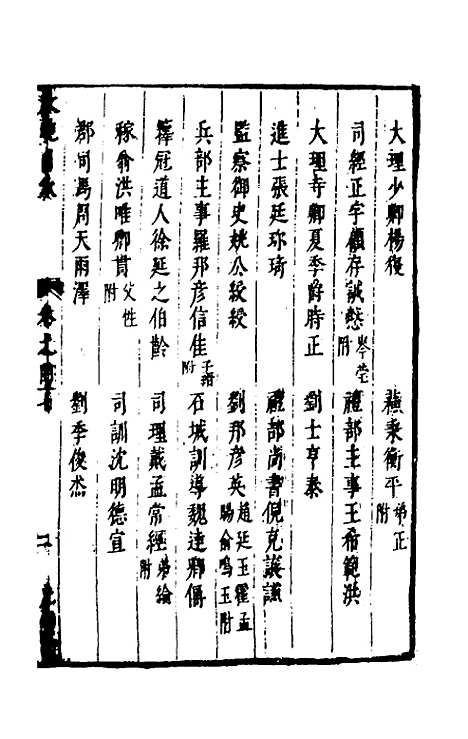 大理少卿楊復 蘇秉衡平弟正附
司經正字顧存誠慤岑瑩附 禮部主事王希範洪
大理寺卿夏季爵時正 劉士亨泰
進士張廷珎琦 禮部尚書倪克讓謙
監察御史姚公綬綬 劉邦彥英趙廷玉瓘孟暘俞鳴玉附
兵部主事羅邦彥信佳子縉附 石城訓導魏達卿偁
籜冠道人徐延之伯齡 司理戴孟常經弟綸附
稼翁洪唯卿貫父性附 司訓沈明德宣
都司馬周天雨澤 劉季俊烝